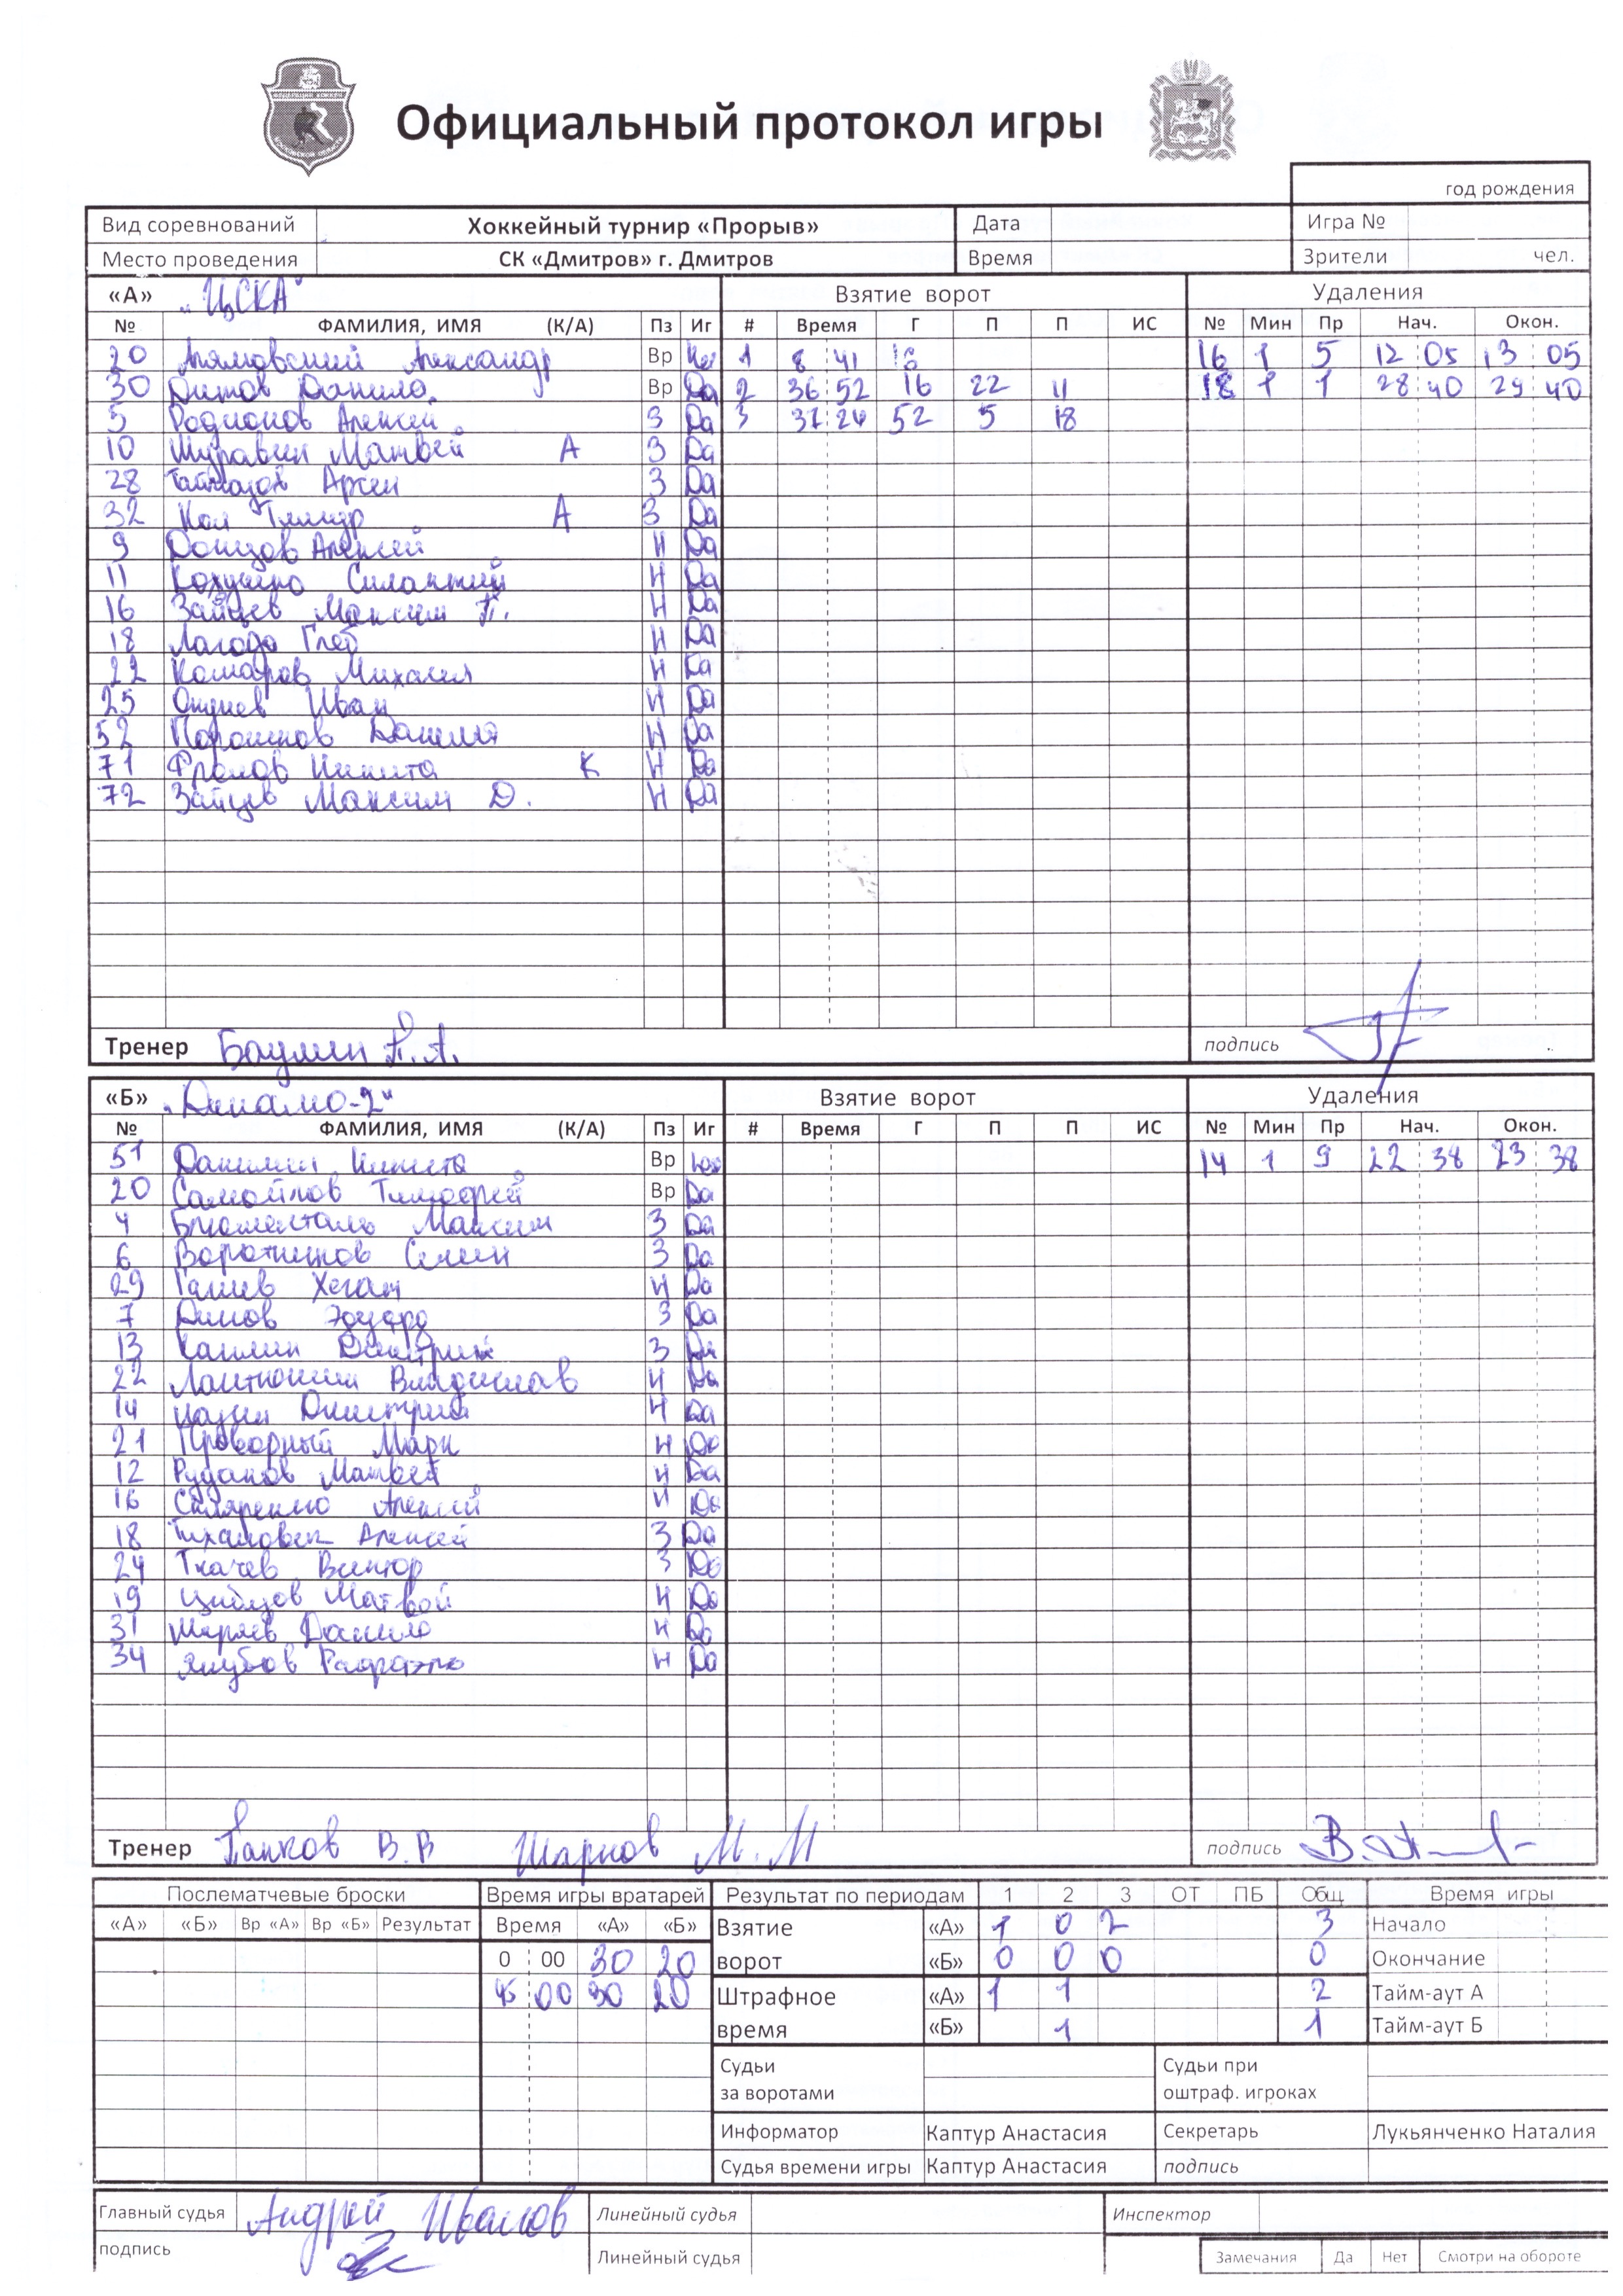 Официальный протокол игры
год рождения
Вид соревнований Хоккейный турнир «Прорыв» Дата Игра №
Место проведения СК «Дмитров» г. Дмитров Время Зрители чел.
«А» "ЦСКА" Взятие ворот Удаления
№ ФАМИЛИЯ, ИМЯ (К/А) Пз Иг # Время Г П П ИС № Мин Пр Нач. Окон.
20 Александр Вр 1 8 41 16 1 5 12 05 13 05
30 Данила Вр Да 2 36 52 16 22 11 18 1 1 28 40 29 40
5 Родионов Алексей З Да 3 37 24 52 5 18
10 Муравин Матвей А З Да
28 Таймазов Арсен З Да
32 Кол Тимур А З Да
9 Донцов Алексей Н Да
11 Силантий Н Да
16 Зайцев Максим П. Н Да
18 Лагода Глеб Н Да
22 Комаров Михаил Н Да
25 Окунев Иван Н Да
52 Порошков Данила Н Да
71 Фролов Никита К Н Да
72 Зайцев Максим Д. Н Да
Тренер Баулин П.А. подпись
«Б» "Динамо-2" Взятие ворот Удаления
№ ФАМИЛИЯ, ИМЯ (К/А) Пз Иг # Время Г П П ИС № Мин Пр Нач. Окон.
51 Данилин Никита Вр 14 1 9 22 38 23 38
20 Самойлов Тимофей Вр Да
4 Блюменталь Максим З Да
6 Воротников Семен З Да
29 Галиев Н Да
7 Димов Эдуард З Да
13 Каплин Дмитрий З Да
22 Владислав Н Да
14 Дмитрий Н Да
21 Проворный Марк Н Да
12 Рудаков Матвей Н Да
16 Скляренко Алексей Н Да
18 Алексей З Да
24 Ткачев Виктор З Да
19 Матвей Н Да
31 Ширяев Данила Н Да
34 Якубов Рафаэль Н Да
Тренер Панков В.В Шарнов М.М подпись
Послематчевые броски Время игры вратарей Результат по периодам 1 2 3 ОТ ПБ Общ Время игры
«А» «Б» Вр «А» Вр «Б» Результат Время «А» «Б» Взятие «А» 1 0 2 3 Начало
0 00 30 20 ворот «Б» 0 0 0 0 Окончание
45 00 30 20 Штрафное «А» 1 1 2 Тайм-аут А
время «Б» 1 1 Тайм-аут Б
Судьи Судьи при
за воротами оштраф. игроках
Информатор Каптур Анастасия Секретарь Лукьянченко Наталия
Судья времени игры Каптур Анастасия подпись
Главный судья Андрей Иванов Линейный судья Инспектор
подпись Линейный судья Замечания Да Нет Смотри на обороте